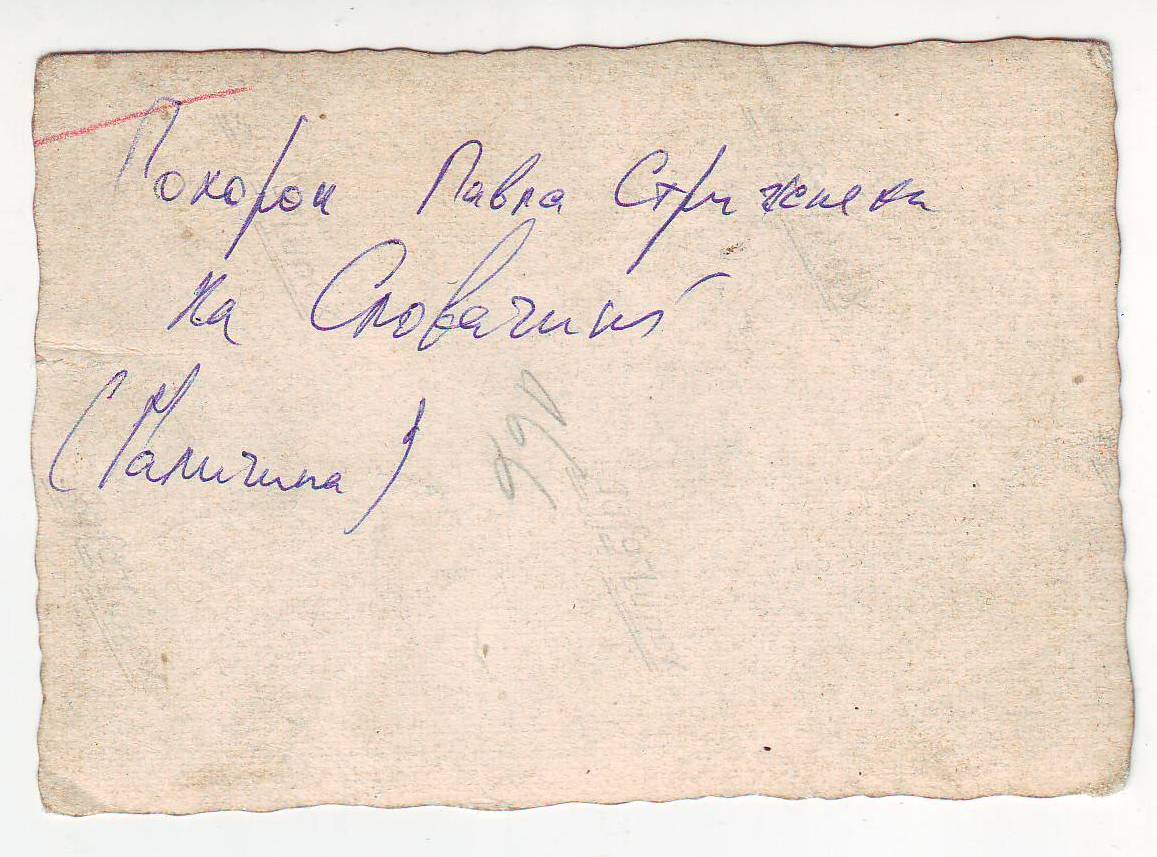 Похорон Павла Стрижнева
на Словачині
(Галичина)